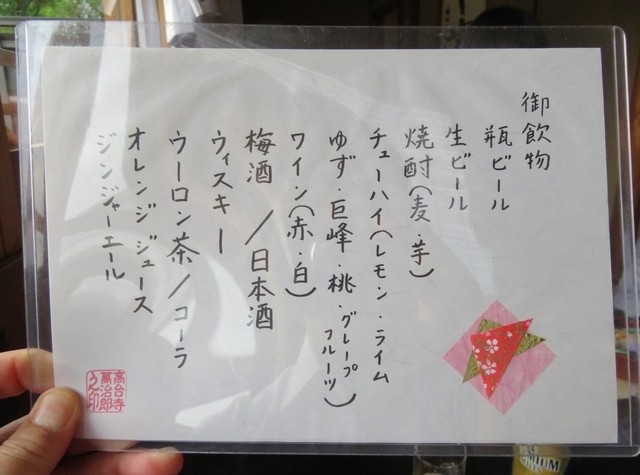 御飲物
瓶ビール
生ビール
焼酎(麦・芋)
チューハイ(レモン・ライム
ゆず・巨峰・桃・グレープフルーツ)
ワイン(赤・白)
梅酒/日本酒
ウィスキー
ウーロン茶/コーラ
オレンジジュース
ジンジャーエール
高台寺